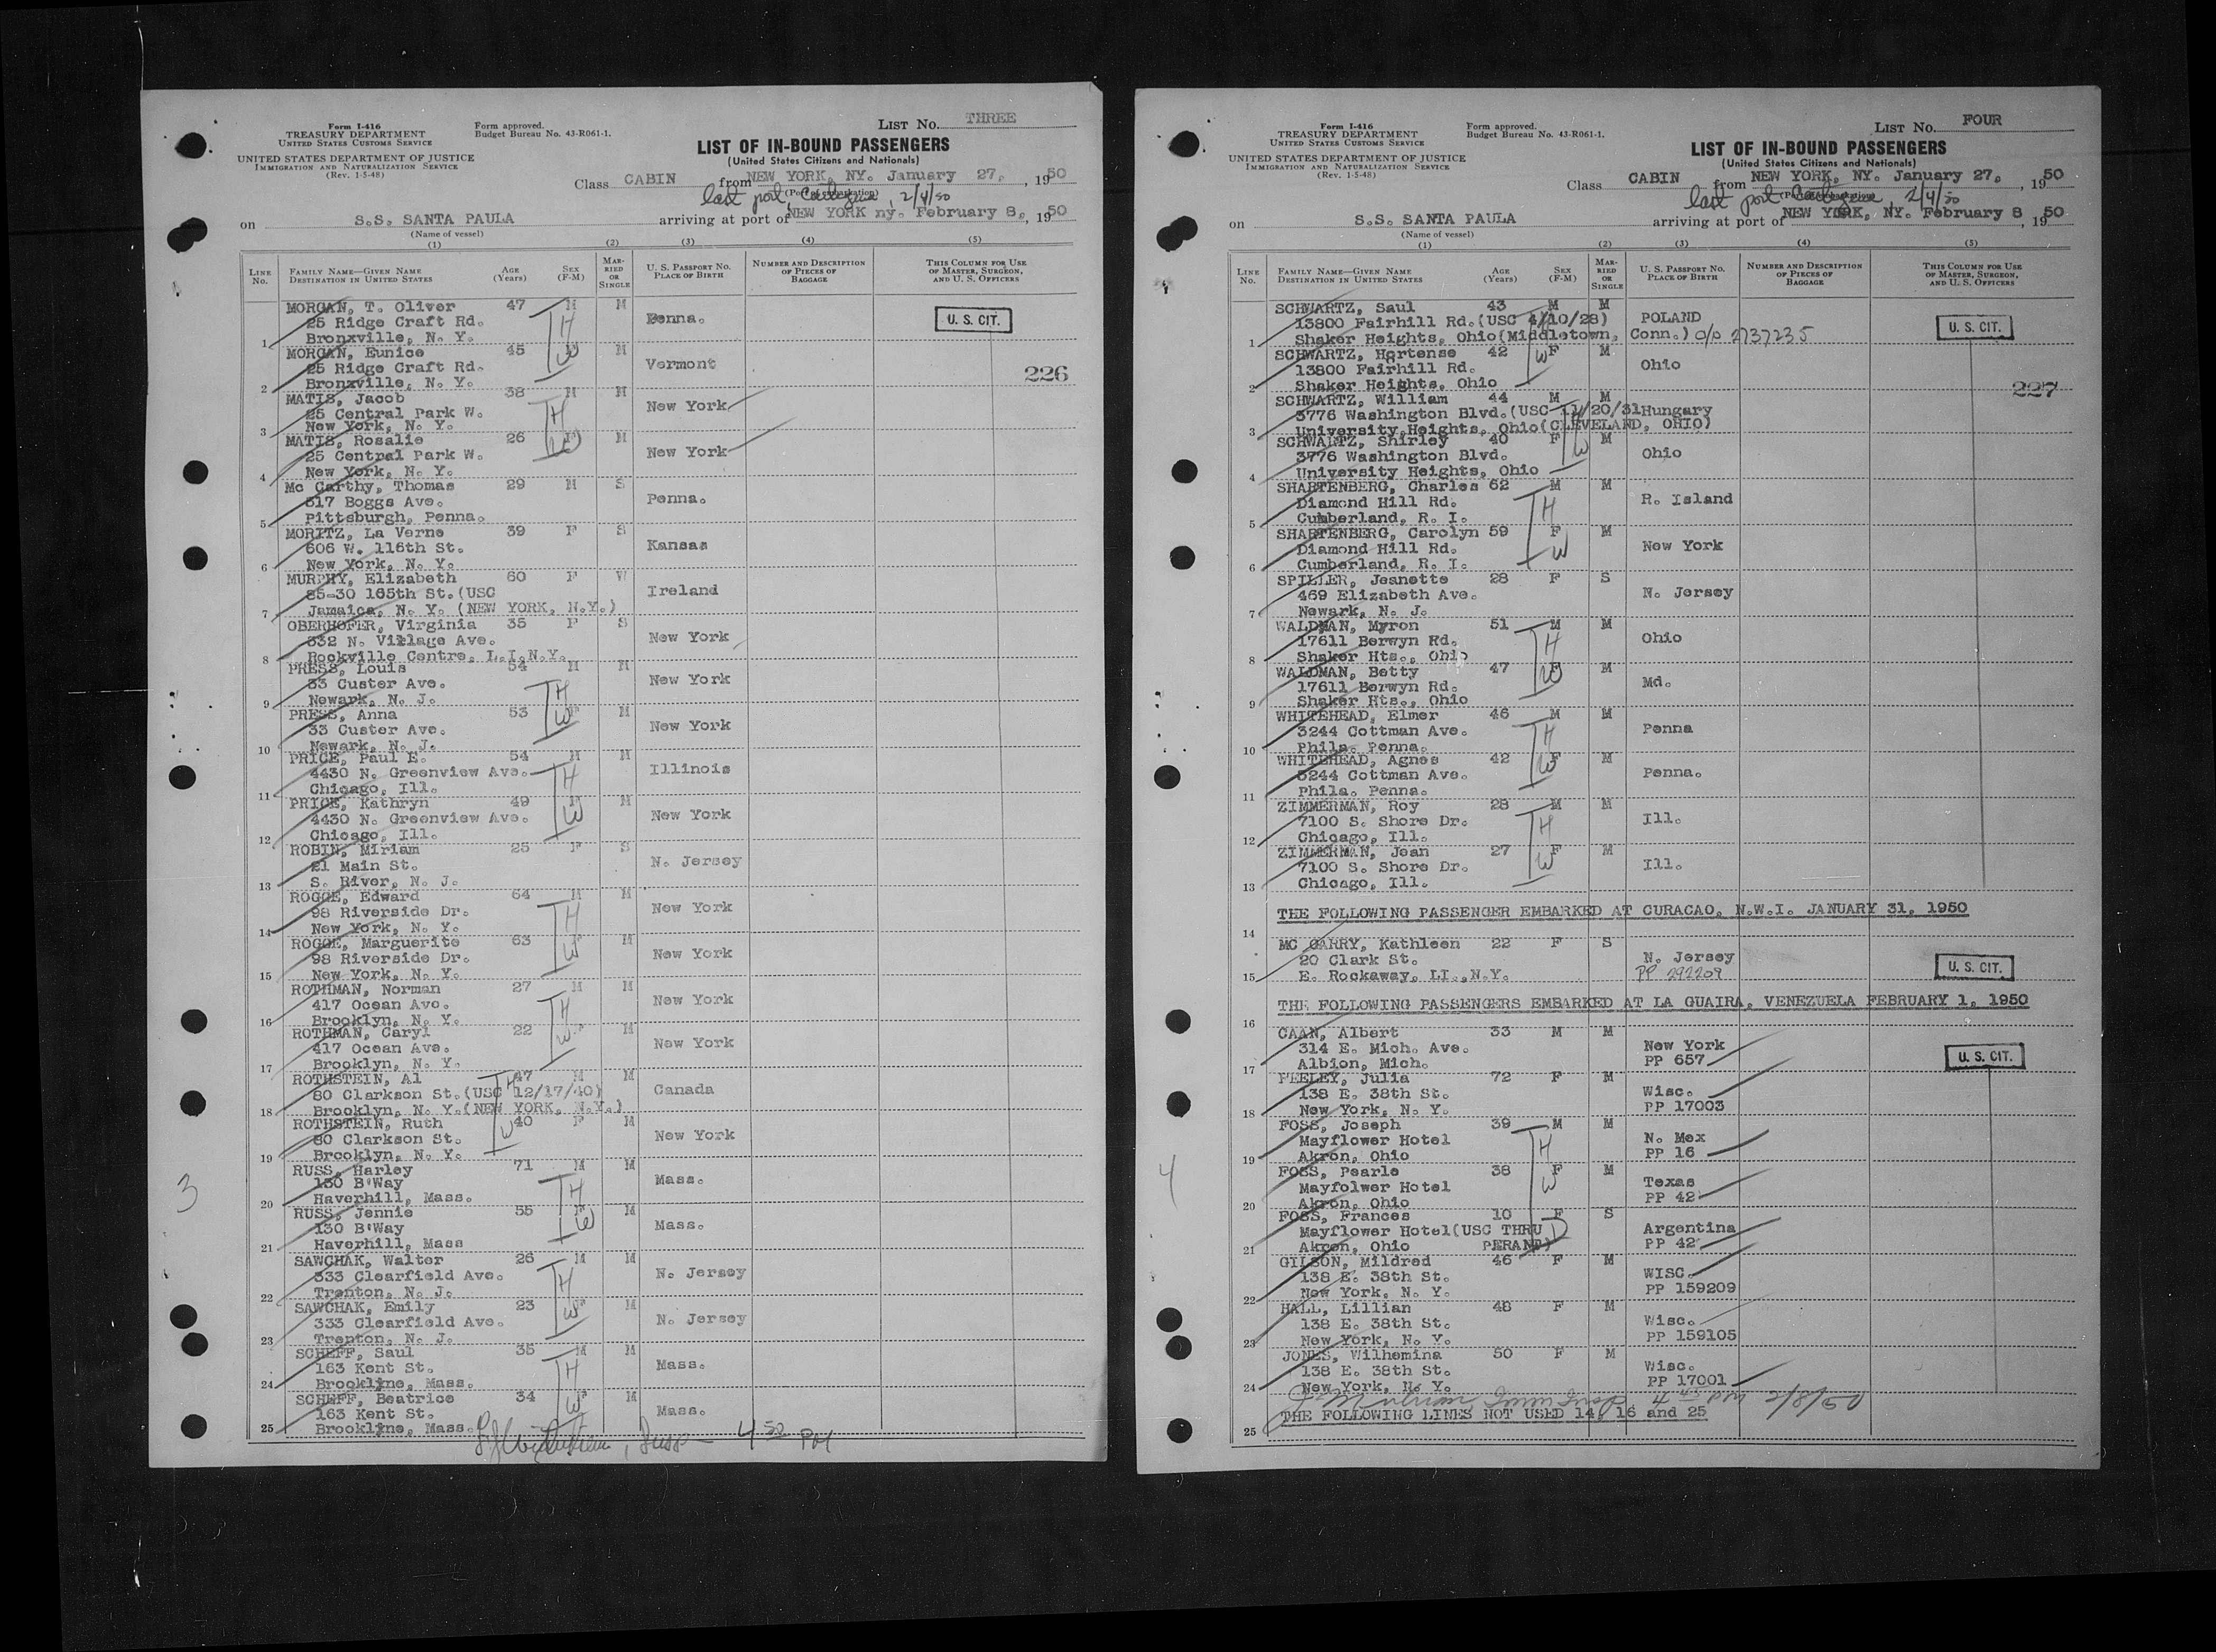 Form I-416
TREASURY DEPARTMENT
UNITED STATES CUSTOMS SERVICE
UNITED STATES DEPARTMENT OF JUSTICE
IMMIGRATION AND NATURALIZATION SERVICE
(Rev. 1-5-48)
Form approved.
Budget Bureau No. 43-R061-1.
LIST No. THREE
LIST OF IN-BOUND PASSENGERS
(United States Citizens and Nationals)
Class CABIN from NEW YORK, NY. January 27, , 1950
(Port of embarkation)
last port, Cartagena, 2/4/50
on S.S. SANTA PAULA arriving at port of NEW YORK ny. February 8, , 1950
(Name of vessel)
(1) (2) (3) (4) (5)
LINE No. FAMILY NAME—GIVEN NAME DESTINATION IN UNITED STATES AGE (Years) SEX (F-M) MARRIED OR SINGLE U. S. PASSPORT NO. PLACE OF BIRTH NUMBER AND DESCRIPTION OF PIECES OF BAGGAGE THIS COLUMN FOR USE OF MASTER, SURGEON, AND U. S. OFFICERS
MORGAN, T. Oliver 47 M M
25 Ridge Craft Rd. Penna. U. S. CIT.
1 Bronxville, N. Y. H
MORGAN, Eunice 45 W M
25 Ridge Craft Rd. Vermont
2 Bronxville, N. Y. 226
MATIS, Jacob 38 M M
25 Central Park W. New York
3 New York, N. Y. H
MATIS, Rosalie 26 F M
25 Central Park W. W New York
4 New York, N. Y.
Mc Carthy, Thomas 29 M S
517 Boggs Ave. Penna.
5 Pittsburgh, Penna.
MORITZ, La Verne 39 F S
606 W. 116th St. Kansas
6 New York, N. Y.
MURPHY, Elizabeth 60 F W
85-30 165th St.(USC Ireland
7 Jamaica, N. Y. (NEW YORK, N.Y.)
OBERHOFER, Virginia 35 F S
332 N. Village Ave. New York
8 Rockville Centre, L.I.N.Y.
PRESS, Louis 54 M M
33 Custer Ave. New York
9 Newark, N. J. H
PRESS, Anna 53 F M
33 Custer Ave. W New York
10 Newark, N. J.
PRICE, Paul E. 54 M M
4430 N. Greenview Ave. H Illinois
11 Chicago, Ill.
PRICE, Kathryn 49 F M
4430 N. Greenview Ave. W New York
12 Chicago, Ill.
ROBIN, Miriam 25 F S
21 Main St. N. Jersey
13 S. River, N. J.
ROGGE, Edward 64 M M
98 Riverside Dr. H New York
14 New York, N. Y.
ROGGE, Marguerite 63 F M
98 Riverside Dr. W New York
15 New York, N. Y.
ROTHMAN, Norman 27 M M
417 Ocean Ave. H New York
16 Brooklyn, N. Y.
ROTHMAN, Caryl 22 F M
417 Ocean Ave. W New York
17 Brooklyn, N. Y.
ROTHSTEIN, Al 47 M M
80 Clarkson St.(USC 12/17/40) H Canada
18 Brooklyn, N. Y.(NEW YORK, N.Y.)
ROTHSTEIN, Ruth 40 F M
80 Clarkson St. W New York
19 Brooklyn, N. Y.
RUSS, Harley 71 M M
130 B'Way H Mass.
20 Haverhill, Mass.
RUSS, Jennie 55 F M
130 B'Way W Mass.
21 Haverhill, Mass
SAWCHAK, Walter 26 M M
333 Clearfield Ave. H N. Jersey
22 Trenton, N. J.
SAWCHAK, Emily 23 F M
333 Clearfield Ave. W N. Jersey
23 Trenton, N. J.
SCHEFF, Saul 35 M M
163 Kent St. H Mass.
24 Brookline, Mass.
SCHEFF, Beatrice 34 F M
163 Kent St. W Mass.
25 Brookline, Mass.
4 50 PM
3
Form I-416
TREASURY DEPARTMENT
UNITED STATES CUSTOMS SERVICE
UNITED STATES DEPARTMENT OF JUSTICE
IMMIGRATION AND NATURALIZATION SERVICE
(Rev. 1-5-48)
Form approved.
Budget Bureau No. 43-R061-1.
LIST No. FOUR
LIST OF IN-BOUND PASSENGERS
(United States Citizens and Nationals)
Class CABIN from NEW YORK, NY. January 27, , 1950
last port Cartagena, 2/4/50
on S.S. SANTA PAULA arriving at port of NEW YORK, NY. February 8 , 1950
(Name of vessel)
(1) (2) (3) (4) (5)
LINE No. FAMILY NAME—GIVEN NAME DESTINATION IN UNITED STATES AGE (Years) SEX (F-M) MARRIED OR SINGLE U. S. PASSPORT NO. PLACE OF BIRTH NUMBER AND DESCRIPTION OF PIECES OF BAGGAGE THIS COLUMN FOR USE OF MASTER, SURGEON, AND U. S. OFFICERS
SCHWARTZ, Saul 43 M M
13800 Fairhill Rd.(USC 4/10/28) POLAND U. S. CIT.
1 Shaker Heights, Ohio(Middletown, Conn.) c/o 2737235
SCHWARTZ, Hortense 42 F M
13800 Fairhill Rd. W Ohio
2 Shaker Heights, Ohio 227
SCHWARTZ, William 44 M M
3776 Washington Blvd.(USC 11/20/31 Hungary
3 University Heights, Ohio(CLEVELAND, OHIO)
SCHWARTZ, Shirley 40 F M
3776 Washington Blvd. W Ohio
4 University Heights, Ohio
SHARTENBERG, Charles 62 M M
Diamond Hill Rd. H R. Island
5 Cumberland, R. I.
SHARTENBERG, Carolyn 59 F M
Diamond Hill Rd. W New York
6 Cumberland, R. I.
SPILLER, Jeanette 28 F S
469 Elizabeth Ave. N. Jersey
7 Newark, N. J.
WALDMAN, Myron 51 M M
17611 Berwyn Rd. H Ohio
8 Shaker Hts., Ohio
WALDMAN, Betty 47 F M
17611 Berwyn Rd. W Md.
9 Shaker Hts., Ohio
WHITEHEAD, Elmer 46 M M
3244 Cottman Ave. H Penna
10 Phila. Penna.
WHITEHEAD, Agnes 42 F M
3244 Cottman Ave. W Penna.
11 Phila. Penna.
ZIMMERMAN, Roy 28 M M
7100 S. Shore Dr. H Ill.
12 Chicago, Ill.
ZIMMERMAN, Jean 27 F M
7100 S. Shore Dr. W Ill.
13 Chicago, Ill.
THE FOLLOWING PASSENGER EMBARKED AT CURACAO, N.W.I. JANUARY 31, 1950
14
MC GARRY, Kathleen 22 F S
20 Clark St. N. Jersey U. S. CIT.
15 E. Rockaway, LI.,N.Y. PP 292209
THE FOLLOWING PASSENGERS EMBARKED AT LA GUAIRA, VENEZUELA FEBRUARY 1, 1950
16
CAAN, Albert 33 M M
314 E. Mich. Ave. New York U. S. CIT.
17 Albion, Mich. PP 657
FEELEY, Julia 72 F M
138 E. 38th St. Wisc.
18 New York, N. Y. PP 17003
FOSS, Joseph 39 M M
Mayflower Hotel H N. Mex
19 Akron, Ohio PP 16
FOSS, Pearle 38 F M
Mayfolwer Hotel W Texas
20 Akron, Ohio PP 42
FOSS, Frances 10 F S
Mayflower Hotel(USC THRU D Argentina
21 Akron, Ohio PERANT) PP 42
GILSON, Mildred 46 F M
138 E. 38th St. WISC.
22 New York, N. Y. PP 159209
HALL, Lillian 48 F M
138 E. 38th St. Wisc.
23 New York, N. Y. PP 159105
JONES, Wilhemina 50 F M
138 E. 38th St. Wisc.
24 New York, N. Y. PP 17001
2/8/50
THE FOLLOWING LINES NOT USED 14, 16 and 25
25
4